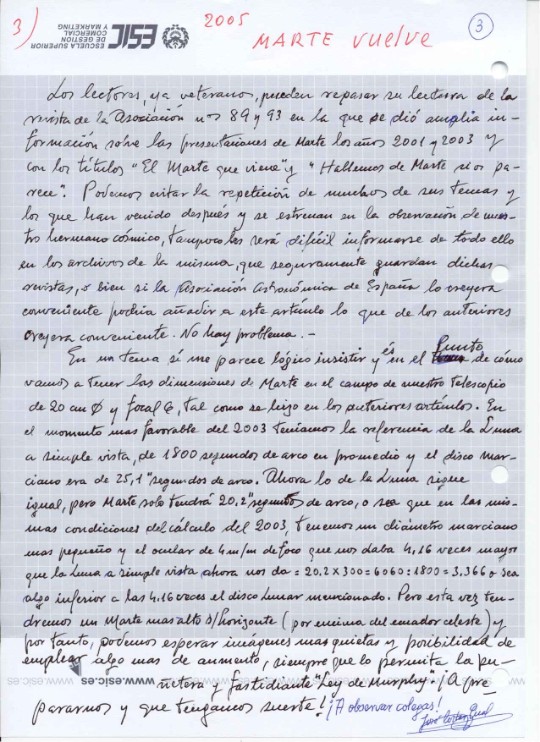 3)
ESIC
ESCUELA SUPERIOR
DE GESTION
COMERCIAL
Y MARKETING
2005
3
MARTE vuelve
Los lectores, ya veteranos, pueden repasar su lectura de la
revista de la Asociación nos 89 y 93 en la que se dió amplia in-
formación sobre las presentaciones de Marte los años 2001 y 2003 y
con los títulos "El Marte que viene" y "Hablemos de Marte si os pa-
rece". Podemos evitar la repetición de muchos de sus temas y
los que han venido después y se estrenan en la observación de nues-
tro hermano cósmico, tampoco les será difícil informarse de todo ello
en los archivos de la misma, que seguramente guardan dichas
revistas, o bien si la Asociación Astronómica de España lo creyera
conveniente podría añadir a este artículo lo que de los anteriores
creyera conveniente. No hay problema.-
En un tema si me parece lógico insistir y es en el Punto de cómo
vamos a tener las dimensiones de Marte en el campo de nuestro telescopio
de 20 cm Ø y focal 6, tal como se hizo en los anteriores artículos. En
el momento mas favorable del 2003 teníamos la referencia de la Luna
a simple vista, de 1800 segundos de arco en promedio y el disco mar-
ciano era de 25,1" segundos de arco. Ahora lo de la Luna sigue
igual, pero Marte solo tendrá 20,2" segundos de arco, o sea que en las mis-
mas condiciones del cálculo del 2003, tenemos un diámetro marciano
mas pequeño y el ocular de 4 m/m de foco que nos daba 4,16 veces mayor
que la Luna a simple vista ahora nos da = 20,2 x 300 = 6060 : 1800 = 3,366 o sea
algo inferior a las 4,16 veces el disco Lunar mencionado. Pero esta vez ten-
dremos un Marte mas alto s/horizonte (por encima del ecuador celeste) y
por tanto, podemos esperar imágenes mas quietas y posibilidad de
empleo algo mas de aumento, siempre que lo permita la pu-
ñetera y fastidiante "Ley de Murphy". ¡A pre-
pararnos y que tengamos suerte! ¡A observar colegas!
www.esic.es